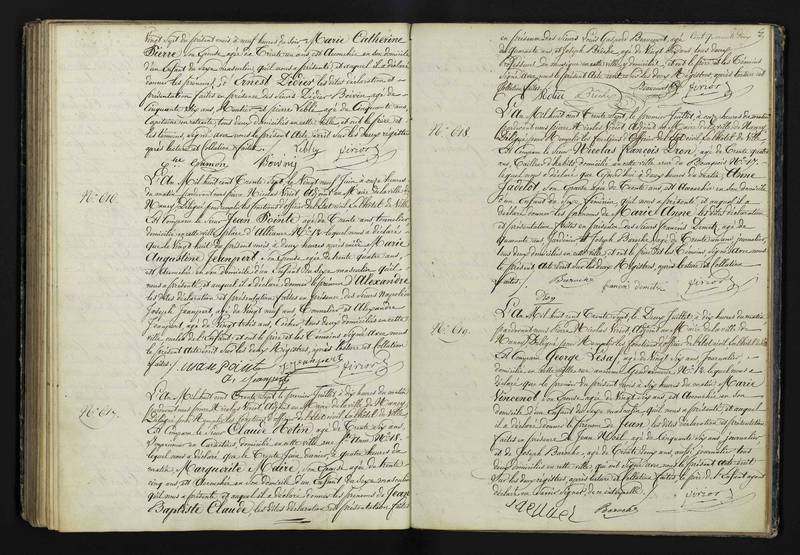 Vingt sept du présent mois à neuf heures du soir Marie Catherine
Pierre son épouse agée de trente ans est accouchée en son domicile
d'un Enfant du Sexe masculin qu'il nous a présenté, et auquel il a déclaré
donner les prénoms d'Ernest Didier les dites déclaration et
présentation faites en présence des Sieurs Didier Boivin agé de
cinquante six ans et pierre Lebly agé de Cinquante ans,
Capitaine en retraite tous deux domiciliés en cette ville et ont le père et
les témoins signé avec nous le présent acte inscrit sur les deux registres
après lecture et collation faites.
Lebly
N.° 616.
L'An Mil huit cent Trente Sept, le vingt neuf Juin à onze heures
du matin pardevant nous Pierre Nicolas Viriot Adjoint au Maire de la ville de
Nancy Délégué pour remplir les fonctions d'officier de l'état civil à l'hôtel de Ville
Est Comparu le Sieur Jean Pointe agé de Trente ans tonnelier
domicilié en cette ville place d'Alliance N.° 12 lequel nous a déclaré
que le vingt huit du présent mois à deux heures après midi Marie
Augustine Jeanpert son épouse agée de trente quatre ans,
est Accouchée en son domicile d'un Enfant du Sexe masculin qu'il
nous a présenté, et auquel il a déclaré donner le prénom d'Alexandre
les dites déclaration et présentation faites en présence des Sieurs Napoléon
Joseph Jeanpert agé de vingt neuf ans tonnelier et Alexandre
Jeanpert, agé de vingt trois ans Cocher tous deux domiciliés en cette
ville, oncles de l'Enfant et ont le père et les témoins Signé avec nous
le présent acte inscrit sur les deux Registres, après lecture et collation
faites
N.° 617.
L'An Mil huit cent Trente Sept le premier Juillet à dix heures du matin
pardevant nous Pierre Nicolas Viriot Adjoint au Maire de la ville de Nancy
Délégué pour remplir les fonctions d'officier de l'état civil à l'hôtel de Ville
Est Comparu le Sieur Claude Motin agé de trente six ans,
Imprimeur en Caractères, domicilié en cette ville rue N.° 18.
lequel nous a déclaré que le Trente Juin dernier, à quatre heures du
matin Marguerite Maire, son épouse agée de trente
cinq ans est Accouchée en Son domicile d'un Enfant du Sexe masculin
qu'il nous a présenté et auquel il a déclaré donner les prénoms de Jean
Baptiste Claude, les dites déclaration et présentation faites
en présence des Sieurs Louis Gaspard Beaumont, agé
de quarante ans, et Joseph agé de vingt ans tous deux
Professeurs de musique en cette ville y domiciliés, et ont le père et les témoins
Signé avec nous le présent Acte inscrit sur les deux Registres, après lecture et
collation faites
Motin Beaumont
N.° 618
L'An Mil huit cent Trente Sept, le premier Juillet à onze heures du matin
pardevant nous Pierre Nicolas Viriot Adjoint au Maire de la ville de Nancy,
Délégué pour Remplir les fonctions d'Officier de l'Etat civil à l'hôtel de Ville
Est Comparu le Sieur Nicolas François Dron, agé de Trente quatre
ans, Tailleur d'habits domicilié en cette ville rue N.° 17.
lequel nous a déclaré que cejourd'hui à deux heures du matin, Anne
Jacelot Son épouse agée de trente ans est Accouchée en Son domicile
d'un Enfant du Sexe féminin, qu'il nous a présenté, et auquel il a
déclaré donner les prénoms de Marie Anne les dites déclaration
et présentation faites en présence des Sieurs François Demetz, agé de
quarante ans, Jardinier et Joseph Baruche agé de Trente ans journalier,
tous deux domiciliés en cette ville, et ont le père et les témoins Signé Avec nous
le présent acte inscrit sur les deux Registres, après lecture et collation
faites
Baruche
N.° 619.
L'An Mil huit cent Trente Sept, le Deux Juillet à dix heures du matin
pardevant nous Pierre Nicolas Viriot, Adjoint au Maire de la ville de
Nancy Délégué pour Remplir les fonctions d'officier de l'état civil à l'hôtel de Ville
Est Comparu George Lesaf, agé de vingt six ans Journalier
domicilié en cette ville rue N.° 12 lequel nous a
déclaré que le premier du présent mois à Six heures du matin, Marie
Vincenot son épouse agée de vingt six ans est Accouchée en son
domicile d'un Enfant du Sexe masculin, qu'il nous a présenté, et auquel
il a déclaré donner le prénom de Jean les dites déclaration et présentation
faites en présence de Jean Weil, agé de Cinquante six ans journalier,
et de Joseph Baruche, agé de Trente deux ans aussi journalier tous
deux domiciliés en cette ville, qui ont Signé avec nous le présent acte inscrit
Sur les deux registres, après lecture et collation faites, le père de l'Enfant ayant
déclaré ne Savoir Signer, de ce interpellé
Baruche